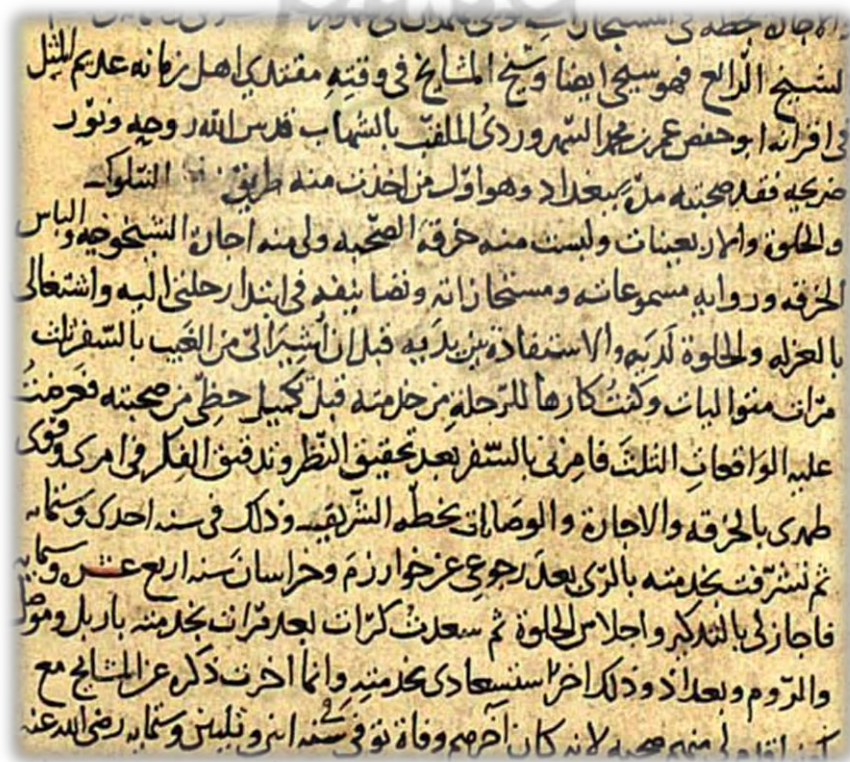 والاجازة بخطه في
الشيخ الرابع فهو شيخي ايضا وشيخ المشايخ في وقته مقتدي اهل زمانه عديم المثل
في اقرانه ابو حفص عمر بن محمد السهروردي الملقب بالشهاب قدس الله روحه ونور
ضريحه فقد صحبته مدة ببغداد وهو اول من اخذت منه طريق السلوك
والخلوة والاربعينات ولبست منه خرقة الصحبة ولي منه اجازة الشيخوخيه والباس
الخرقه ورواية مسموعاته ومستجازاته وتصانيفه في ابتدا رحلتي اليه واشتغالي
بالعزله والخلوة لديه والاستفادة بين يديه قبل ان اشير الي من الغيب بالسفر ثلث
مرات متواليات وكنت كارها للرحلة من خدمته قبل تكميل حظي من صحبته فعرضت
عليه الواقعات الثلث فامرني بالسفر بعد تحقيق النظر وتدقيق الفكر في امري وقوى
ظهرى بالخرقه والاجازة والوصايات بخطه الشريفه وذلك في سنه احدى وستمايه
ثم تشرفت بخدمته بالرى بعد رجوعي عن خوارزم وخراسان سنه اربع عشره وستمايه
فاجاز لي بالتذكير واجلاس الخلوة ثم سعدت كرات بعد مرات بخدمته باربل وموصل
والروم وبغداد وذلك اخر استسعادى بخدمته وانما اخرت ذكره عن المشايخ مع
كونه اقدم لي منهم صحبه لانه كان آخرهم وفاة توفي في سنه اثنى وثلثين وستمايه رضى الله عنه